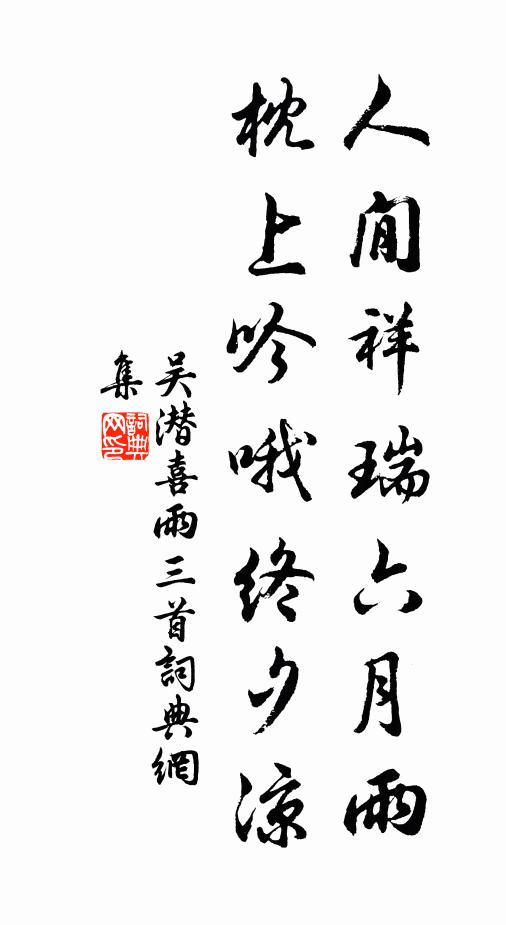 人間祥瑞六月雨
枕上吟哦終夕涼
吴潜喜雨三首詞典網
集
詞典
网印